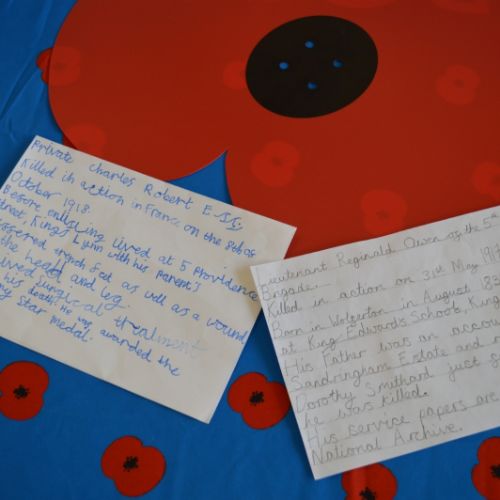 Private Charles Robert E
Killed in action in France on the 8th of
October 1918.
Before enlisting lived at 5 Providence
street, Kings Lynn with his parents
suffered trench foot as well as a wound
the head and leg.
surgical treatment
his death. He was awarded the
Star medal.
Lieutenant Reginald Owen of the 5th
Brigade.
Killed in action on 31st May 1917
Born in Wolferton in August 189
at King Edwards School, King
His Father was an accou
Sandringham Estate and
Dorothy Smithard just
he was killed.
His service papers are
National Archive.